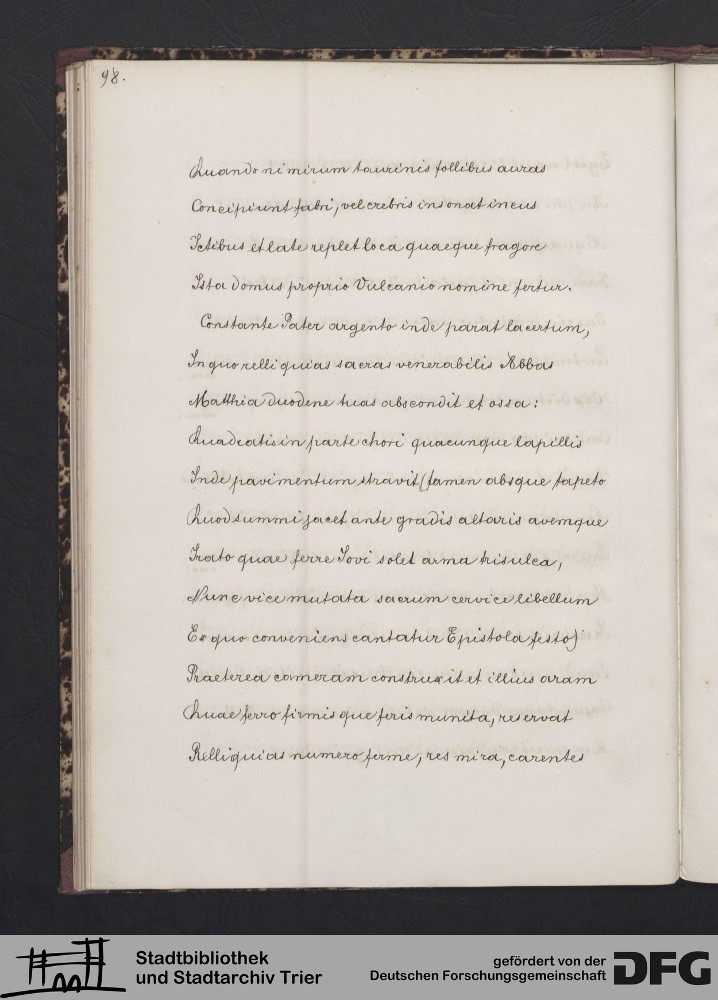 98.
Quando nimirum taurinis follibus auras
Concipiunt fabri, vel crebris insonat incus
Ictibus et late replet loca quaeque fragore
Ista domus proprio Vulcanio nomine fertur.
Constante Pater argento inde parat lacertum,
In quo relliquias sacras venerabilis Abbas
Matthia duodene tuas abscondit et ossa:
Quadratis in parte chori quacunque lapillis
Inde pavimentum stravit (tamen absque tapeto
Quod summi jacet ante gradis altaris avemque
Irato quae ferre Jovi solet arma trisulca,
Nunc vice mutata sacrum cervice libellum
Ex quo conveniens cantatur Epistola festo)
Praeterea cameram construxit et illius aram
Quae ferro firmisque feris munita, reservat
Relliquias numero ferme, res mira, carentes
Stadtbibliothek
und Stadtarchiv Trier
gefördert von der
Deutschen Forschungsgemeinschaft
DFG